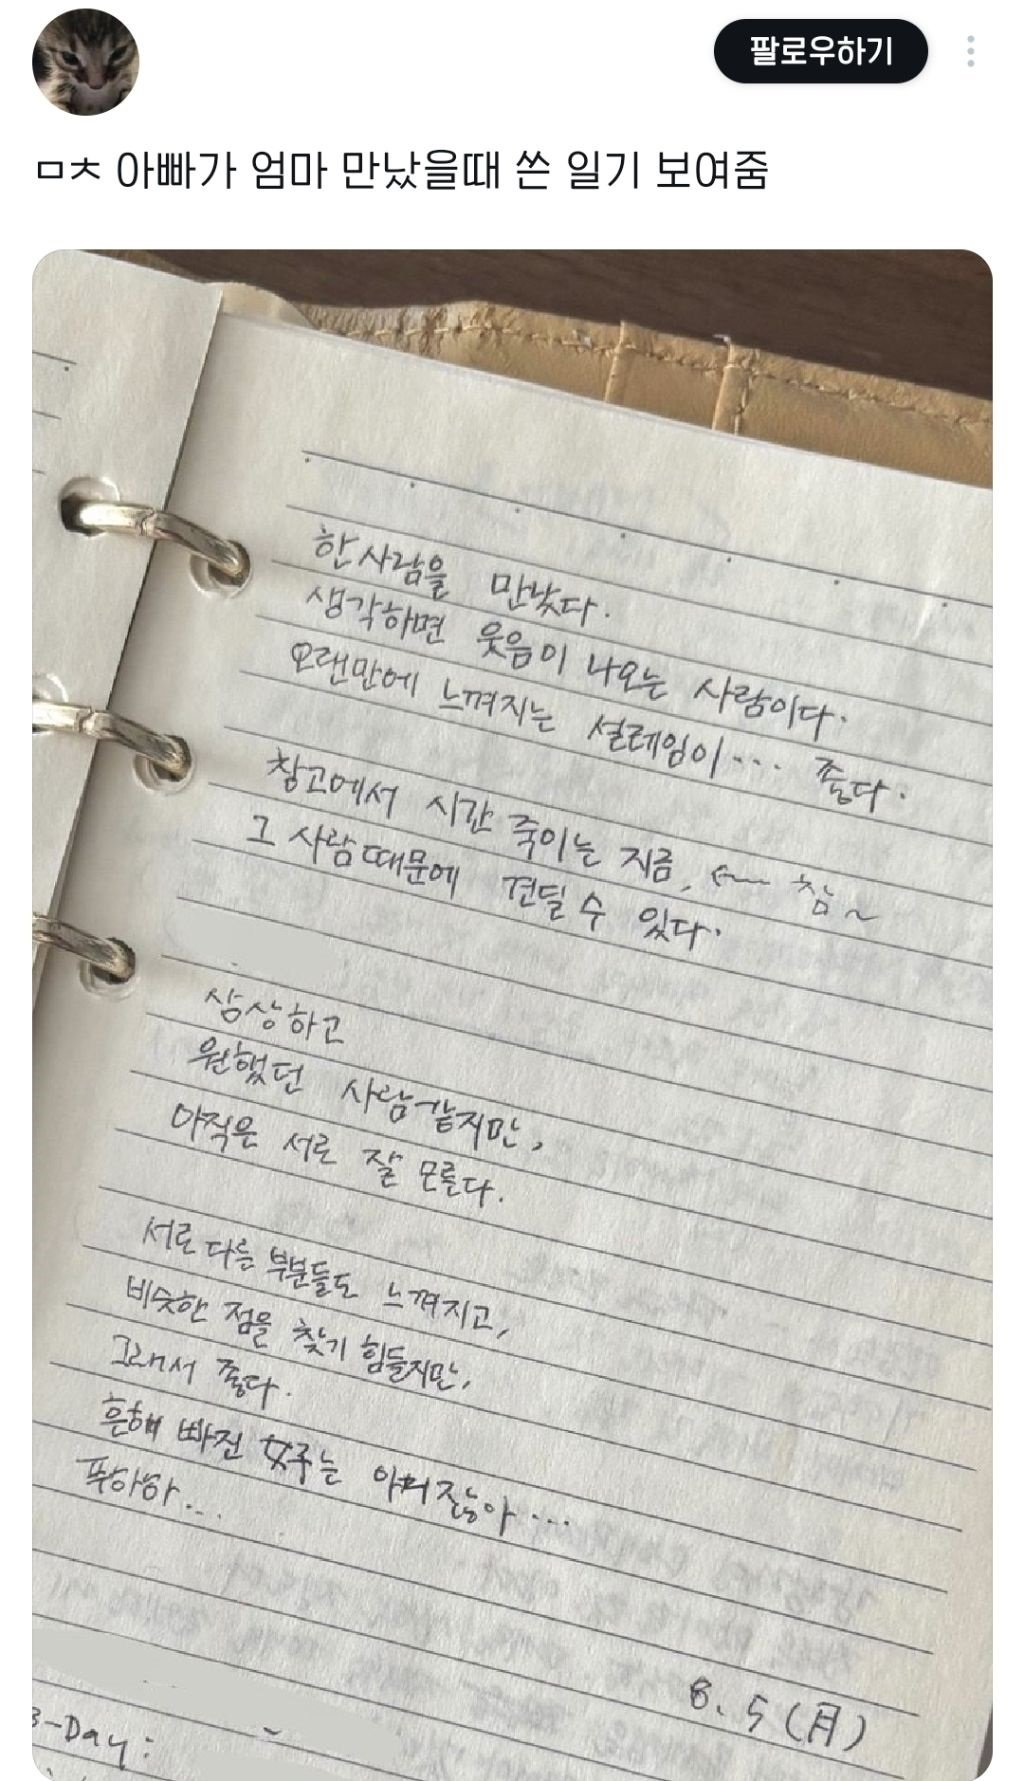 팔로우하기
ㅁㅊ 아빠가 엄마 만났을때 쓴 일기 보여줌
한 사람을 만났다.
생각하면 웃음이 나오는 사람이다.
오랜만에 느껴지는 설레임이... 좋다.
창고에서 시간 죽이는 지금, ← 참~
그 사람 때문에 견딜 수 있다.
상상하고
원했던 사람 같지만,
아직은 서로 잘 모른다.
서로 다른 부분들도 느껴지고,
비슷한 점을 찾기 힘들지만,
그래서 좋다.
흔해 빠진 는 아니잖아...
푸하하...
8. 5 (月)
B-Day: